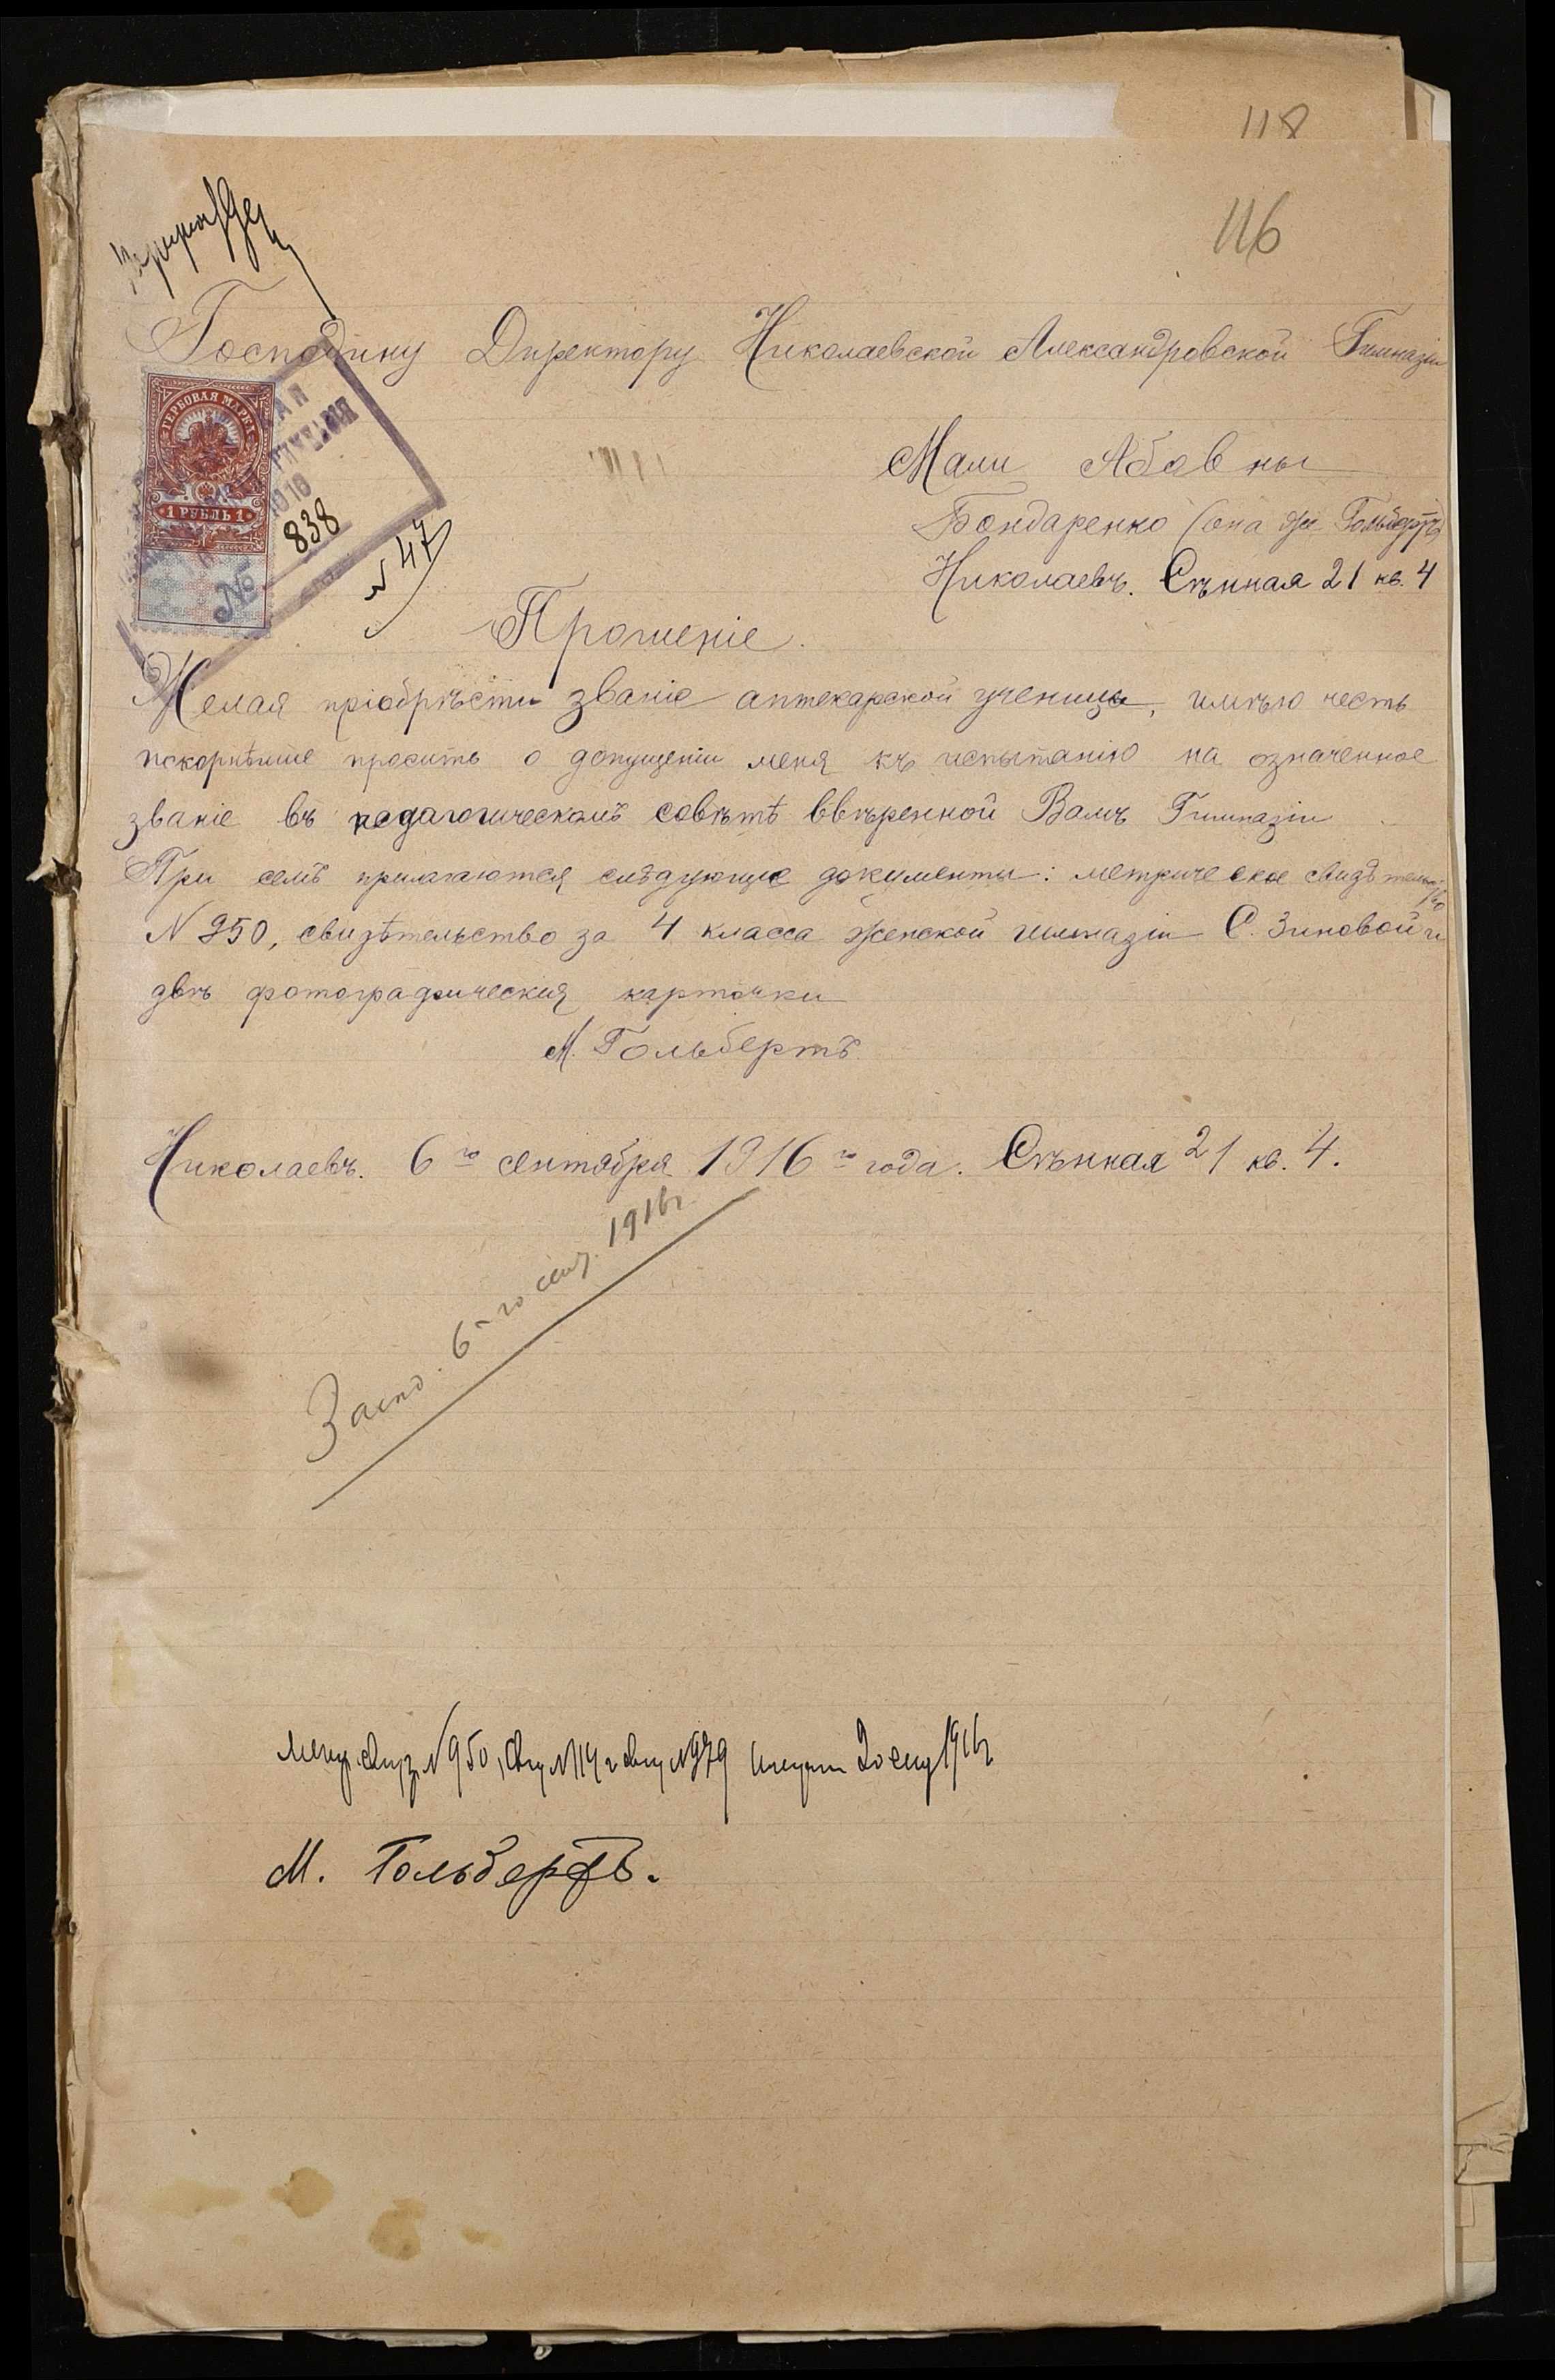 118
116
Господину Директору Николаевской Александровской Гимназіи
ГЕРБОВАЯ МАРКА
1 РУБЛЬ 1
№ 838
N 47
Мали Абовны
Бондаренко (она же Гольбертъ)
Николаевъ. Сѣнная 21 кв. 4
Прошеніе.
Желая пріобрѣсти званіе аптекарской ученицы, имѣю честь
покорнѣйше просить о допущеніи меня къ испытанію на означенное
званіе въ педагогическомъ совѣтѣ ввѣренной Вамъ Гимназіи
При семъ прилагаются слѣдующіе документы: метрическое свидѣтельство
N 950, свидѣтельство за 4 класса женской гимназіи С. Зиновой и
двѣ фотографическія карточки
М. Гольбертъ.
Николаевъ. 6го сентября 1916го года. Сѣнная 21 кв. 4.
6-го сент. 1916г.
N 950, N 114 и N 979 1916г
М. Гольбертъ.